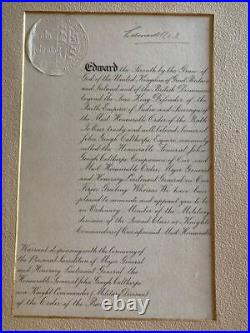 Edward R & I
Edward the Seventh by the Grace of
God of the United Kingdom of Great Britain
and Ireland and of the British Dominions
beyond the Seas King Defender of the
Faith Emperor of India and Sovereign of
the Most Honorable Order of the Bath
To Our trusty and well beloved Somerset
John Gough Calthorpe Esquire commonly
called the Honorable Somerset John
Gough Calthorpe Companion of Our said
Most Honorable Order, Major General
and Honorary Lieutenant General in Our
Army Greeting Whereas We have been
pleased to nominate and appoint you to be
an Ordinary Member of the Military
division of the Second Class or Knights
Commanders of Our said Most Honorable
Warrant dispensing with the ceremony of
the Personal Investiture of Major General
and Honorary Lieutenant General the
Honorable Somerset John Gough Calthorpe
as a Knight Commander (Military Division)
of the Order of the Bath